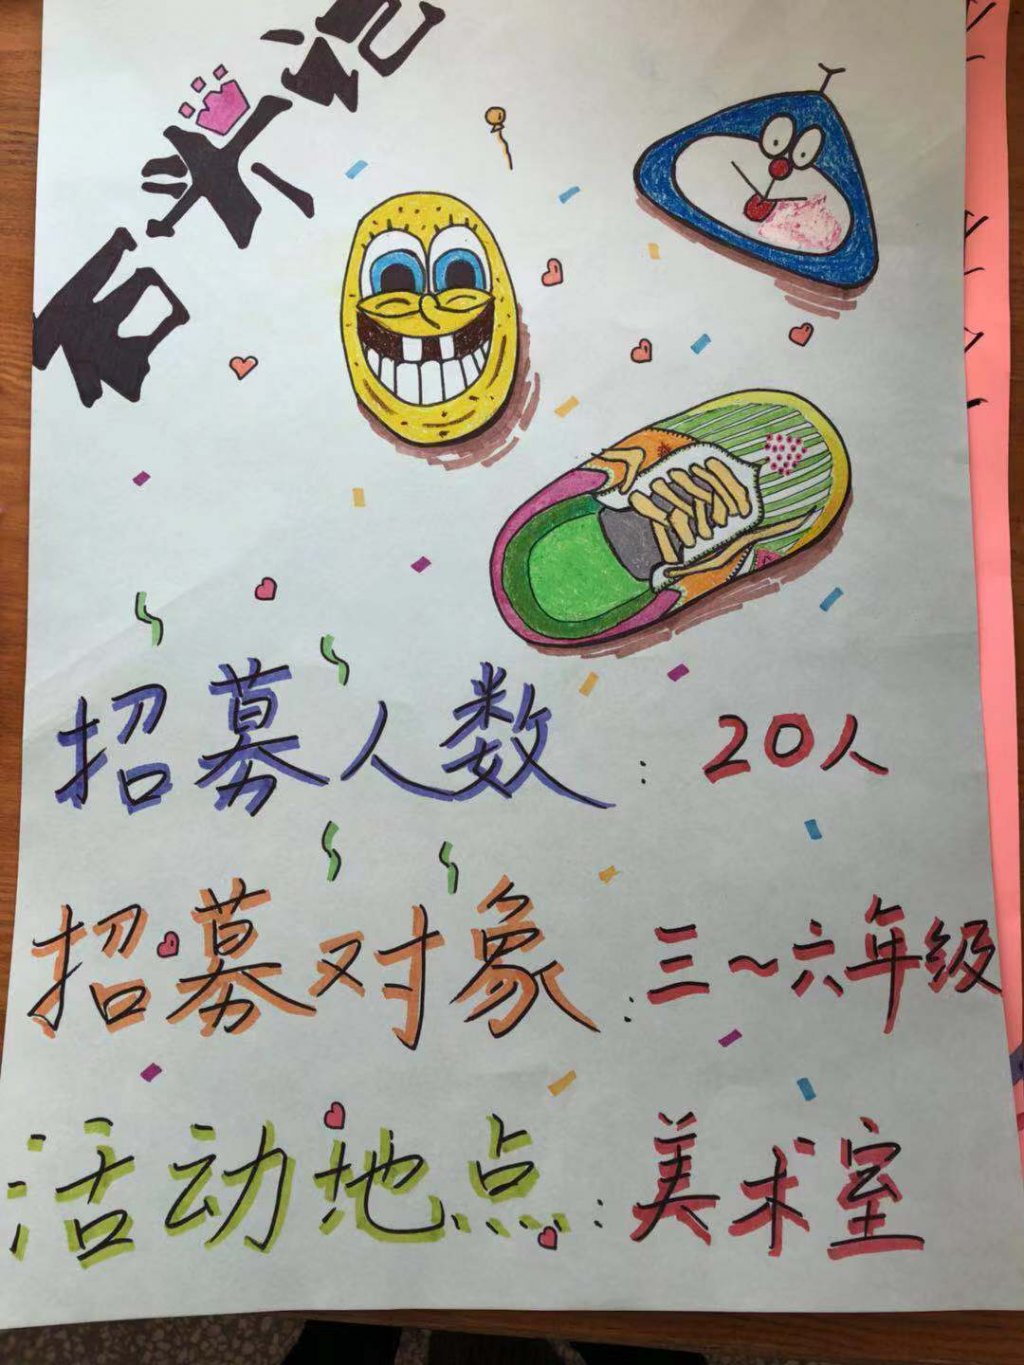 石头记
招募人数：20人
招募对象：三~六年级
活动地点：美术室